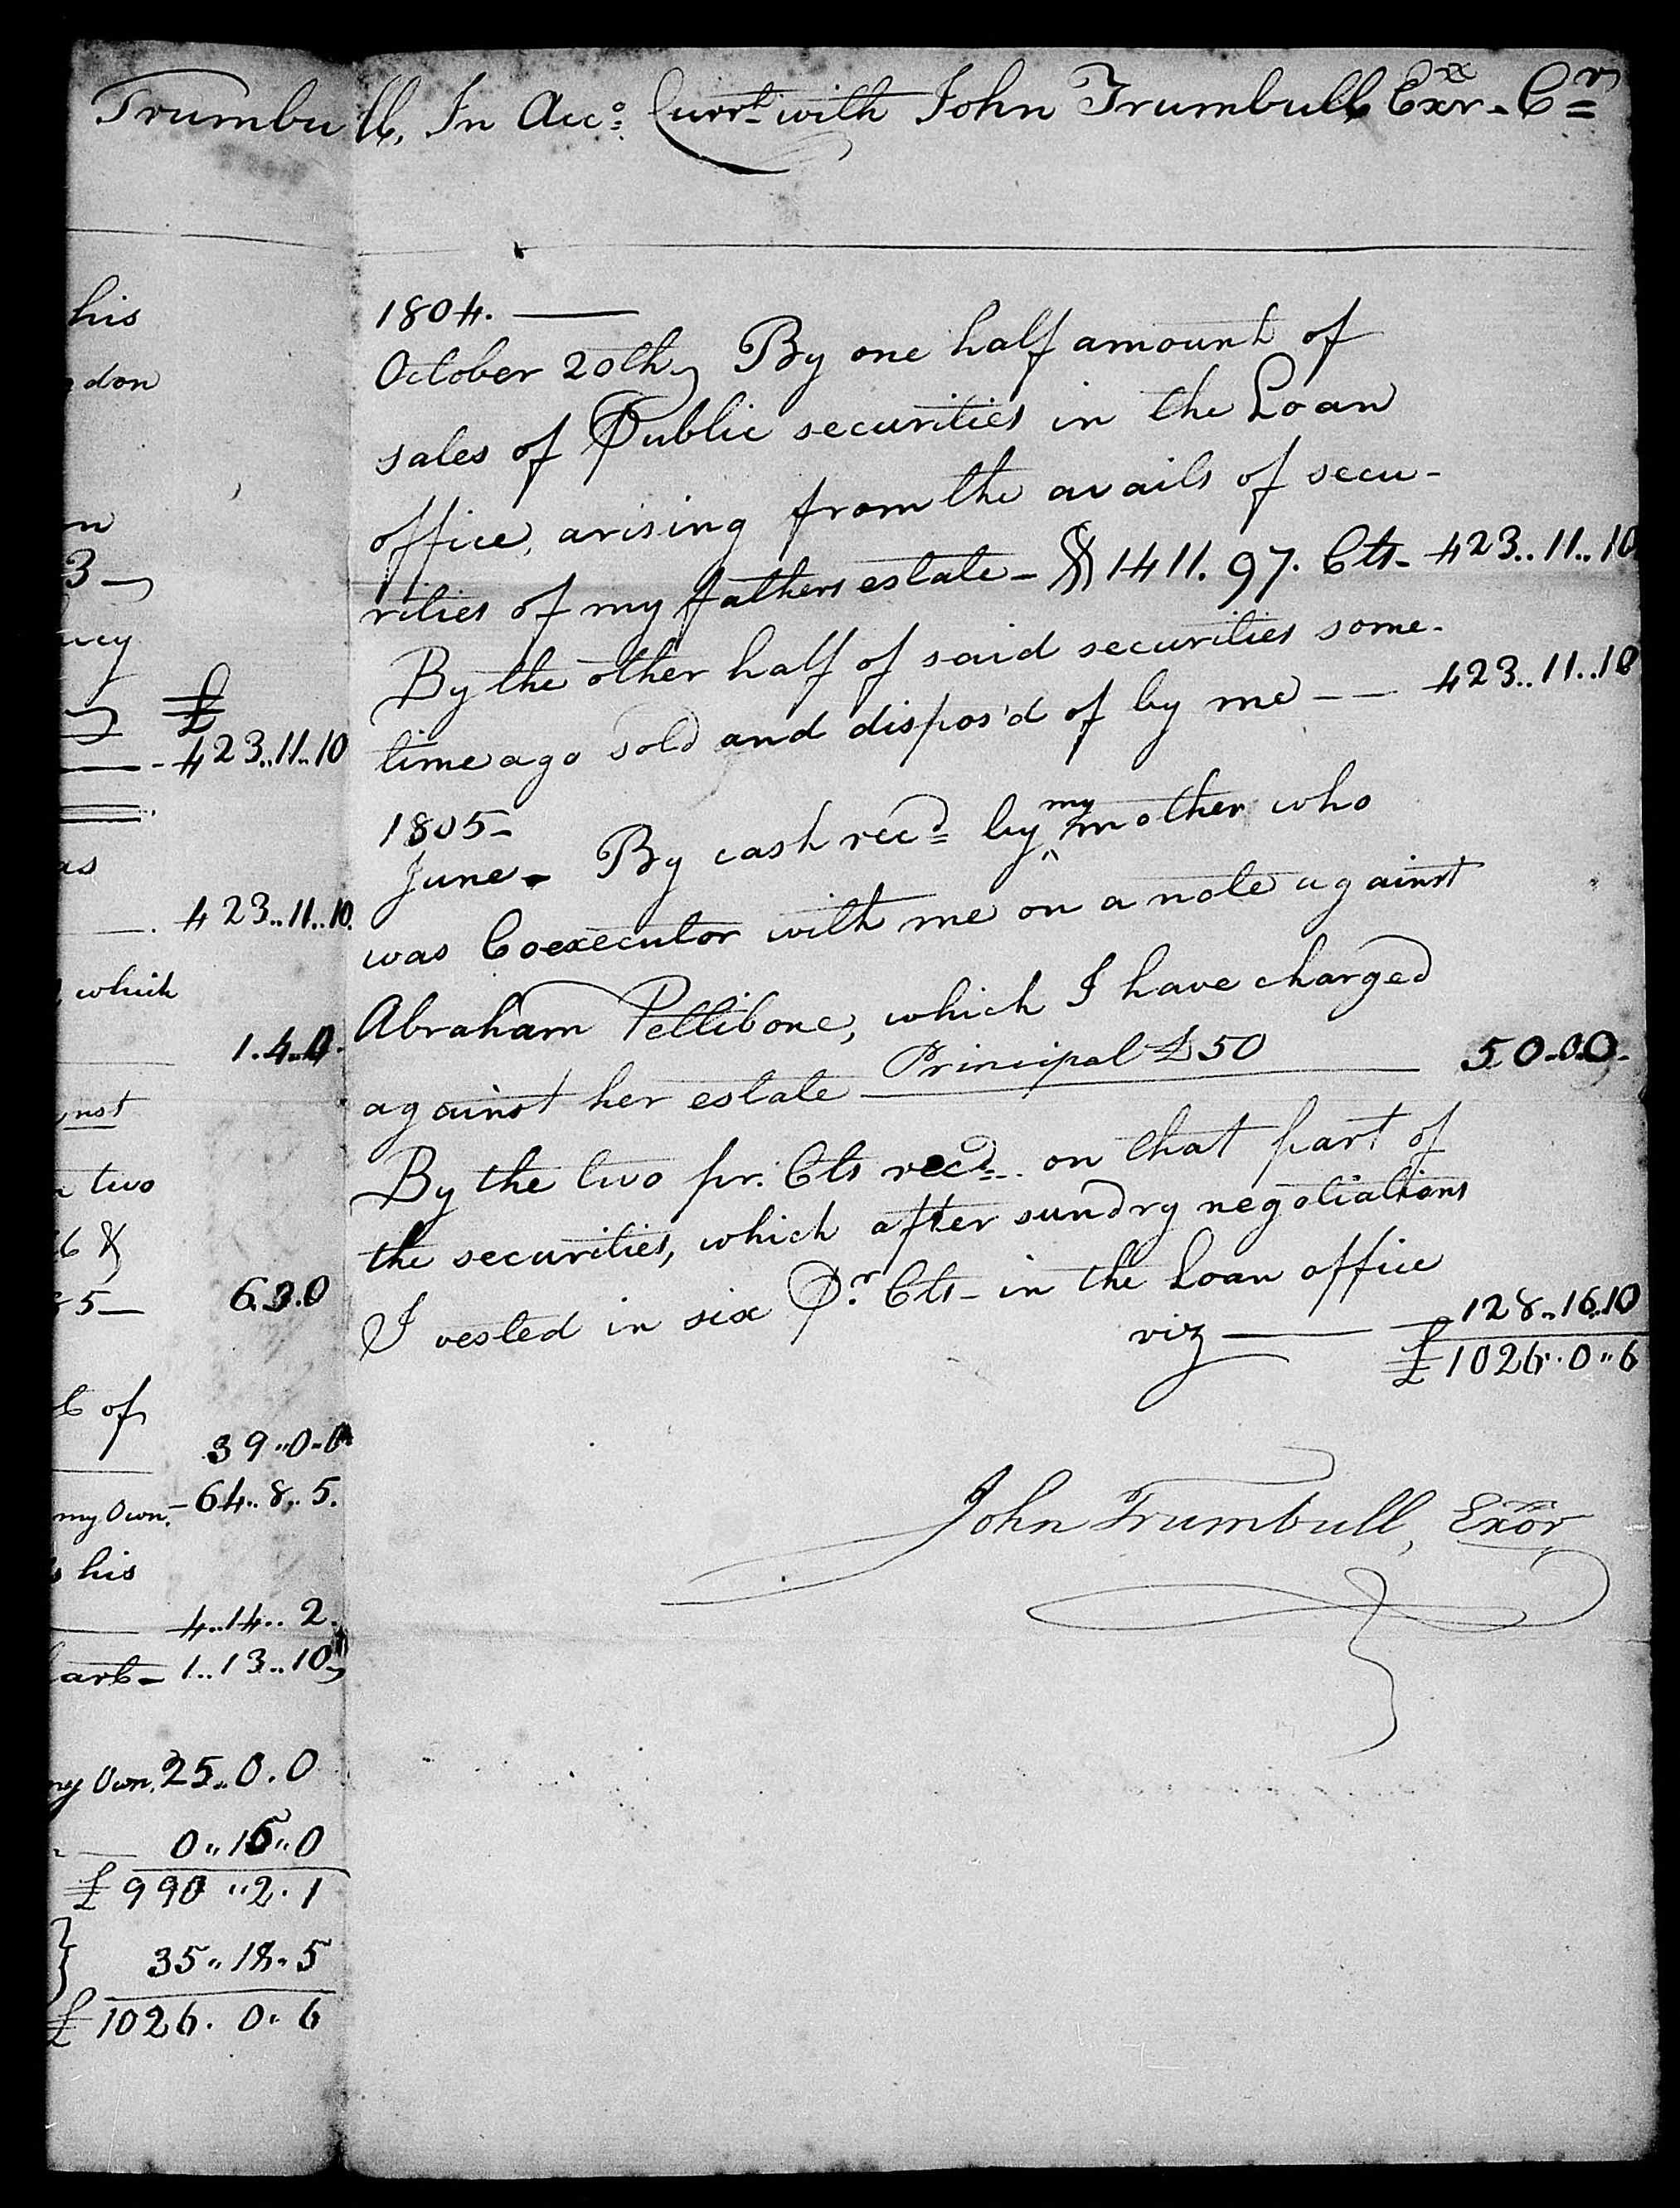 Trumbull, In Acco: Currt with John Trumbull Exr - Cr
his
don
n
3
£
423..11..10
as
423..11..10.
, which
1.4..0.
nst
two
6 &
5—
6.3.0
of
39..0-0
my Own. - 64..8..5.
his
4..14..2.
1..13..10
my Own, 25..0.0
0..16..0
£ 990 "2.1
} 35..18.5
£ 1026. 0.. 6
1804. —
October 20th, By one half amount of
sales of Public securities in the Loan
office, arising from the avails of secu-
rities of my fathers estate - $ 1411. 97. Cts - 423..11..10
By the other half of said securities some-
time ago sold and dispos'd of by me — 423..11..10
1805-
June - By cash recd by my mother who
was Coexecutor with me on a note against
Abraham Pettibone, which I have charged
against her estate — Principal £50 — 50-0.0-
By the two pr. Cts recd on that part of
the securities, which after sundry negotiations
I vested in six Pr. Cts - in the Loan office
viz — 128..16.10
£ 1026..0..6
John Trumbull, Exor